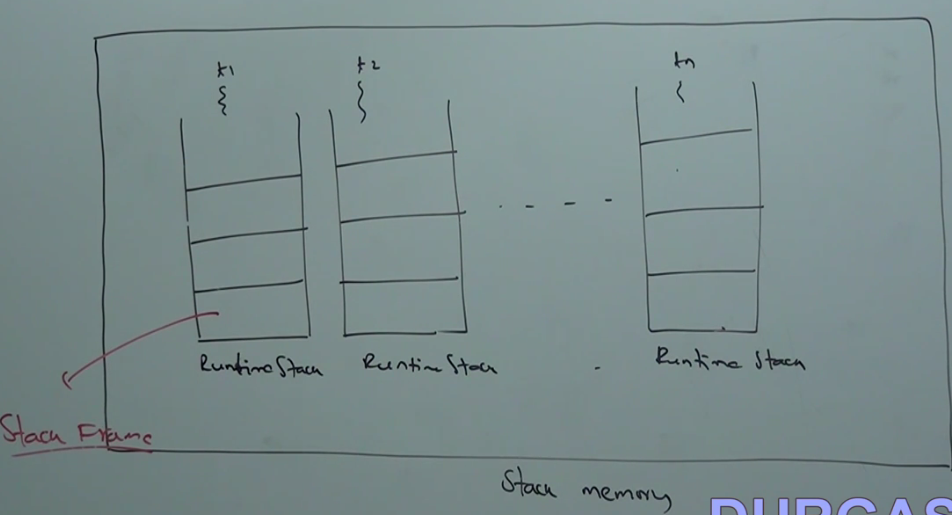 t1 t2 tn
Runtime Stack Runtime Stack Runtime Stack
Stack Frame
Stack memory
DURGAS